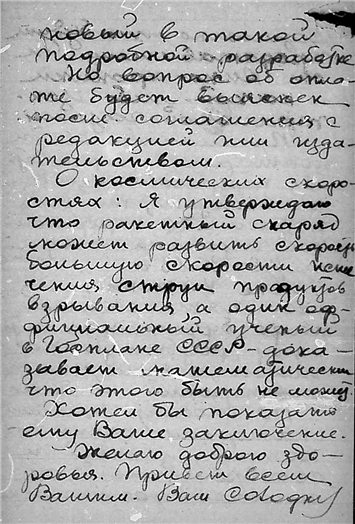 новый в такой
подробной разработке
Но вопрос об опла-
те будет выяснен
после соглашения с
редакцией или изда-
тельством.
О космических скоро-
стях: Я утверждаю
что ракетный снаряд
может развить скорость
большую скорости исте-
чения струи продуктов
взрывания, а один оф-
фициальный ученый
в Госплане СССР - дока-
зывает математически
что этого быть не может.
Хотел бы показать
ему Ваше заключение.
Желаю доброго здо-
ровья. Привет всем
Вашим. Ваш